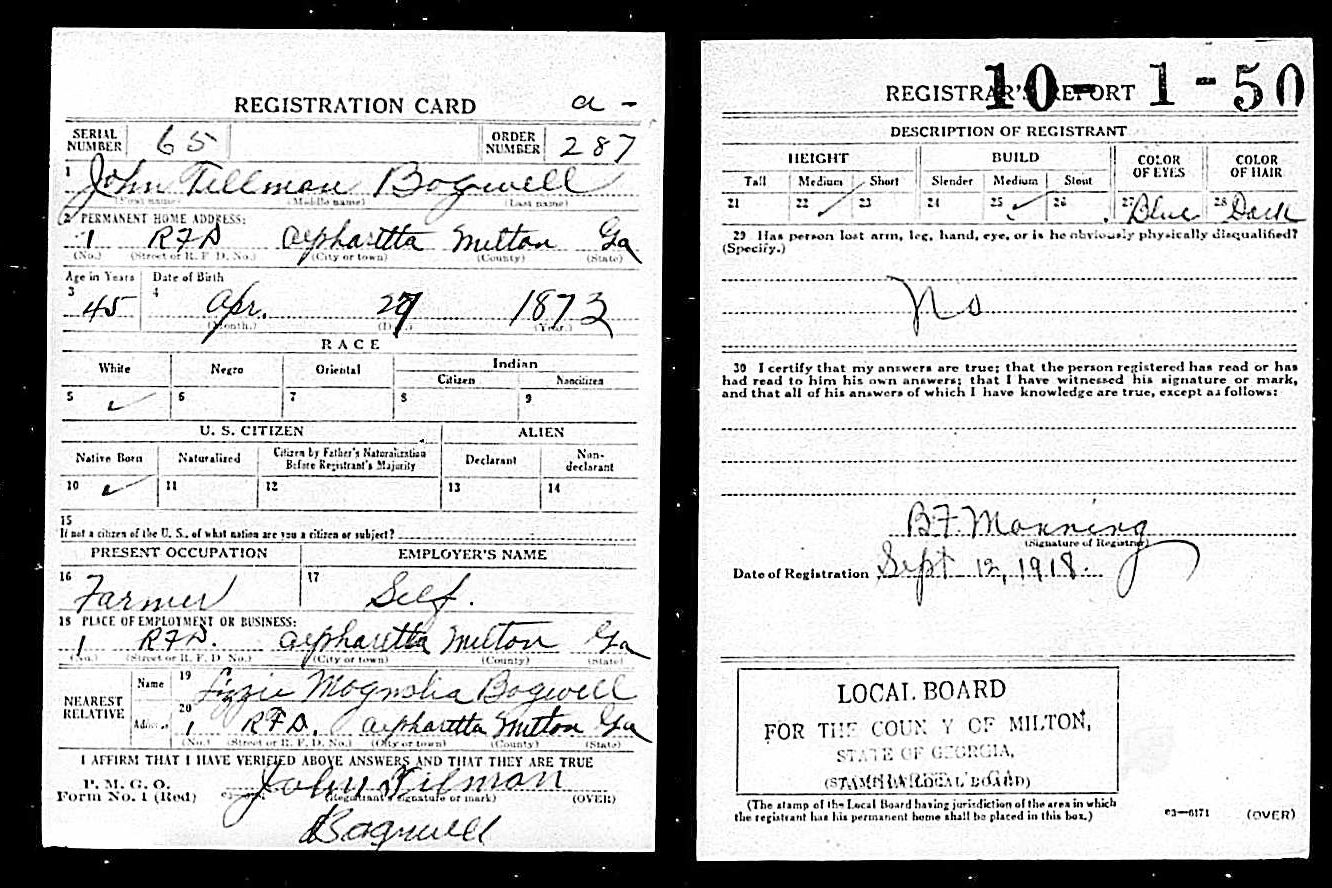 REGISTRATION CARD a -
SERIAL NUMBER 65 ORDER NUMBER 287
1 John Tillman Bagwell
(First name) (Middle name) (Last name)
2 PERMANENT HOME ADDRESS:
1 RFD Alpharetta Milton Ga
(No.) (Street or R. F. D. No.) (City or town) (County) (State)
Age in Years Date of Birth
3 45 4 Apr. 27 1873
(Month.) (Day.) (Year.)
RACE
White Negro Oriental Indian
Citizen Noncitizen
5 ✓ 6 7 8 9
U. S. CITIZEN ALIEN
Native Born Naturalized Citizen by Father's Naturalization Before Registrant's Majority Declarant Non-declarant
10 ✓ 11 12 13 14
15
If not a citizen of the U. S., of what nation are you a citizen or subject?
PRESENT OCCUPATION EMPLOYER'S NAME
16 Farmer 17 Self.
18 PLACE OF EMPLOYMENT OR BUSINESS:
1 RFD. Alpharetta Milton Ga
(No.) (Street or R. F. D. No.) (City or town) (County) (State)
NEAREST RELATIVE
Name 19 Lizzie Magnolia Bagwell
Address 20 1 RFD. Alpharetta Milton Ga
(No.) (Street or R. F. D. No.) (City or town) (County) (State)
I AFFIRM THAT I HAVE VERIFIED ABOVE ANSWERS AND THAT THEY ARE TRUE
P. M. G. O.
Form No. 1 (Red) John Tilman
(Registrant's signature or mark) (OVER)
Bagwell
REGISTRAR'S REPORT 10-1-50
DESCRIPTION OF REGISTRANT
HEIGHT BUILD COLOR OF EYES COLOR OF HAIR
Tall Medium Short Slender Medium Stout
21 22 ✓ 23 24 25 ✓ 26 27 Blue 28 Dark
29 Has person lost arm, leg, hand, eye, or is he obviously physically disqualified?
(Specify.)
No
30 I certify that my answers are true; that the person registered has read or has
had read to him his own answers; that I have witnessed his signature or mark,
and that all of his answers of which I have knowledge are true, except as follows:
B.F. Manning
(Signature of Registrar)
Date of Registration Sept 12, 1918.
LOCAL BOARD
FOR THE COUN Y OF MILTON,
STATE OF GEORGIA,
(STAMP OF LOCAL BOARD)
(The stamp of the Local Board having jurisdiction of the area in which
the registrant has his permanent home shall be placed in this box.)
63—6171 (OVER)